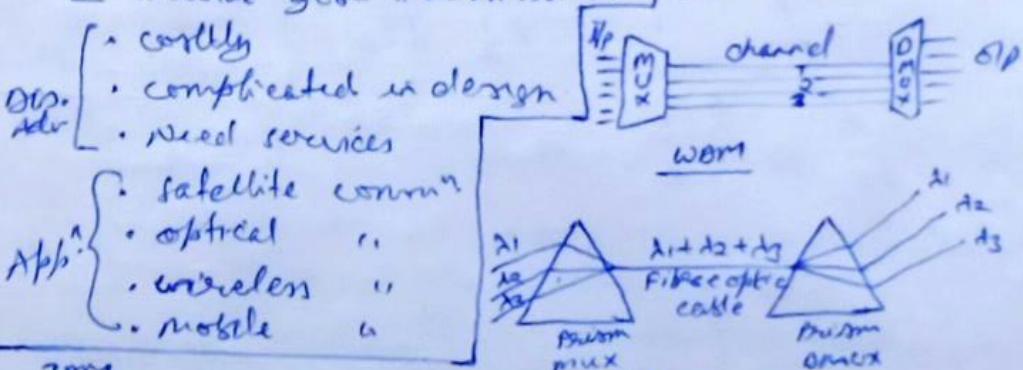 Dis. Adv
• costly
• complicated in design
• Need services
Appⁿ:
• satellite commⁿ
• optical "
• wireless "
• mobile "
I/p
MUX
channel
1
2
3
DEMUX
O/p
WDM
λ1
λ2
λ3
Prism
mux
λ1+λ2+λ3
Fibre optic
cable
Prism
Dmux
λ1
λ2
λ3